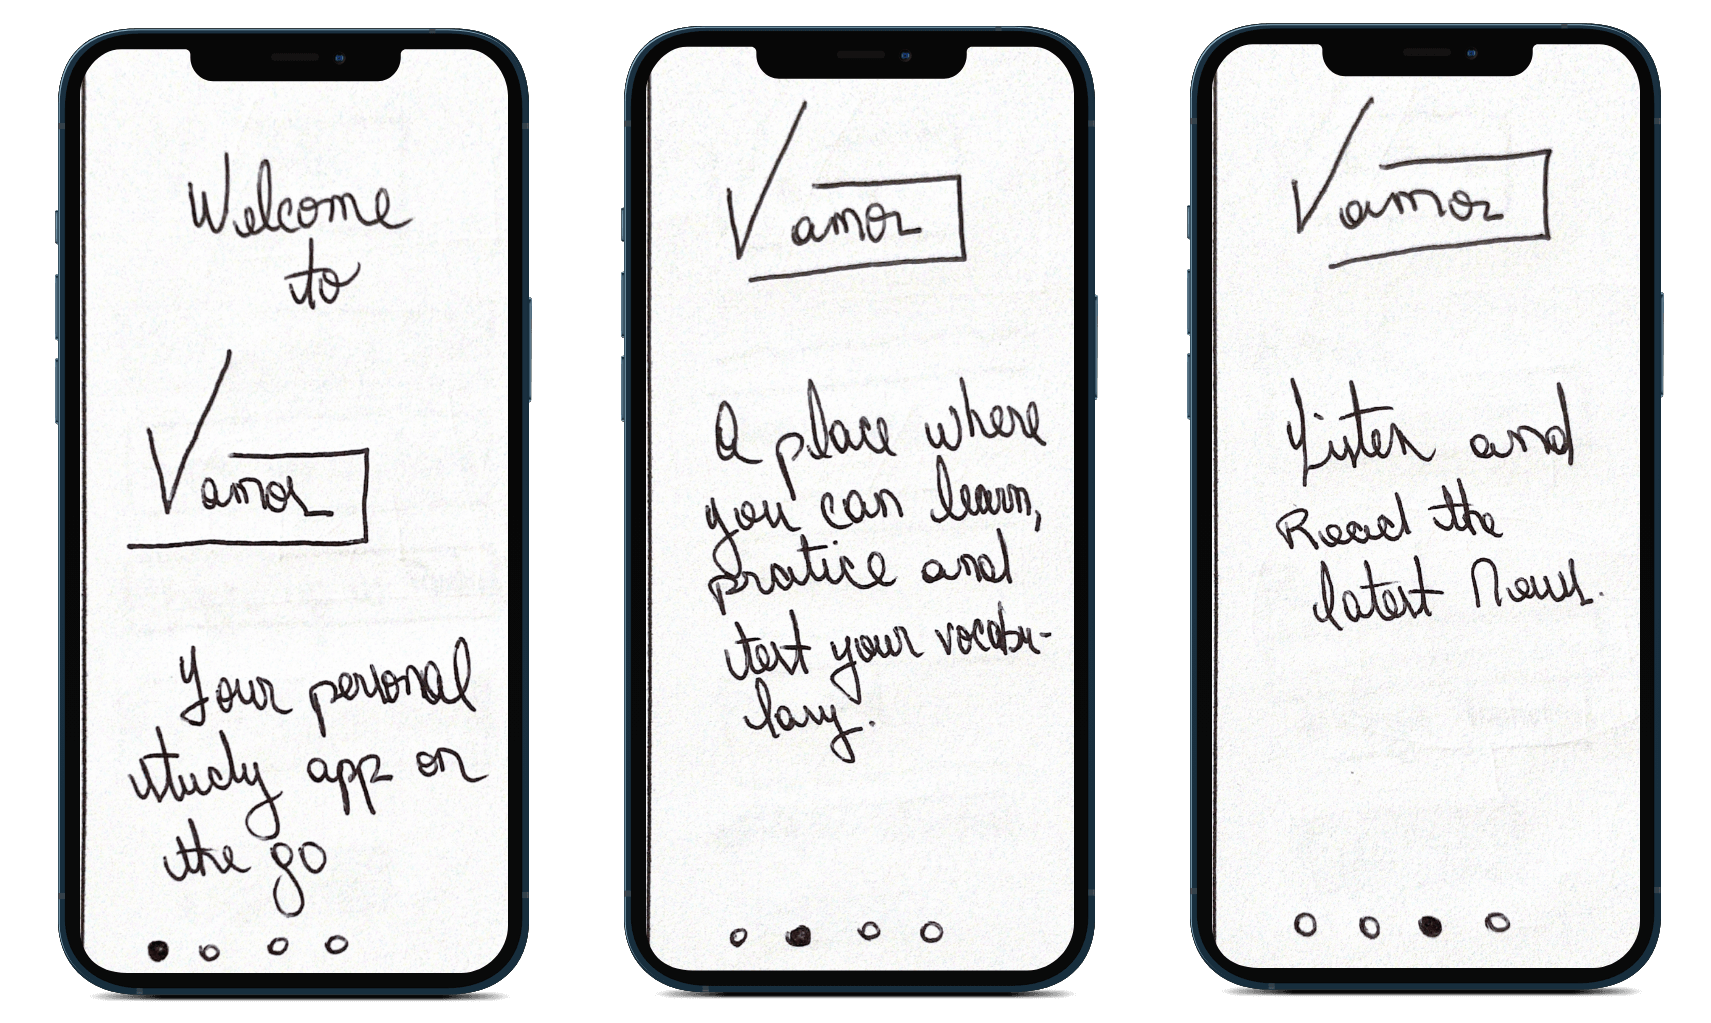 Welcome
to
Vamos
Your personal
study app on
the go
Vamos
A place where
you can learn,
pratice and
test your vocabu-
lary.
Vamos
Listen and
Read the
latest News.